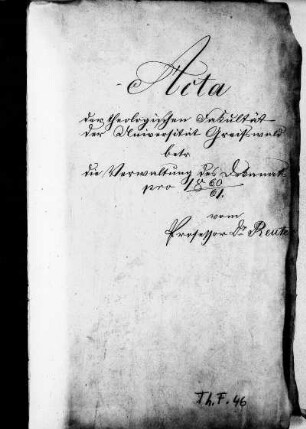 Acta
der theologischen Fakultät
der Universität Greifswald
betr.
die Verwaltung des Dekanats
pro 18 60/61.
vom
Professor Dr Reuter
Th. F. 46